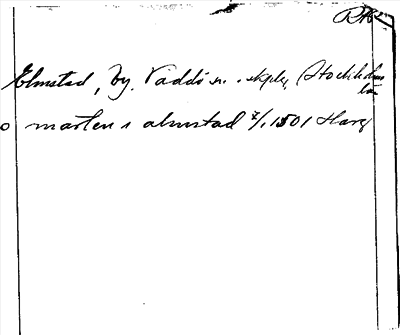 Elmstad, by, Väddö sn. o. skplg, Stockholms
län
o marten i almstad 7/1 1501